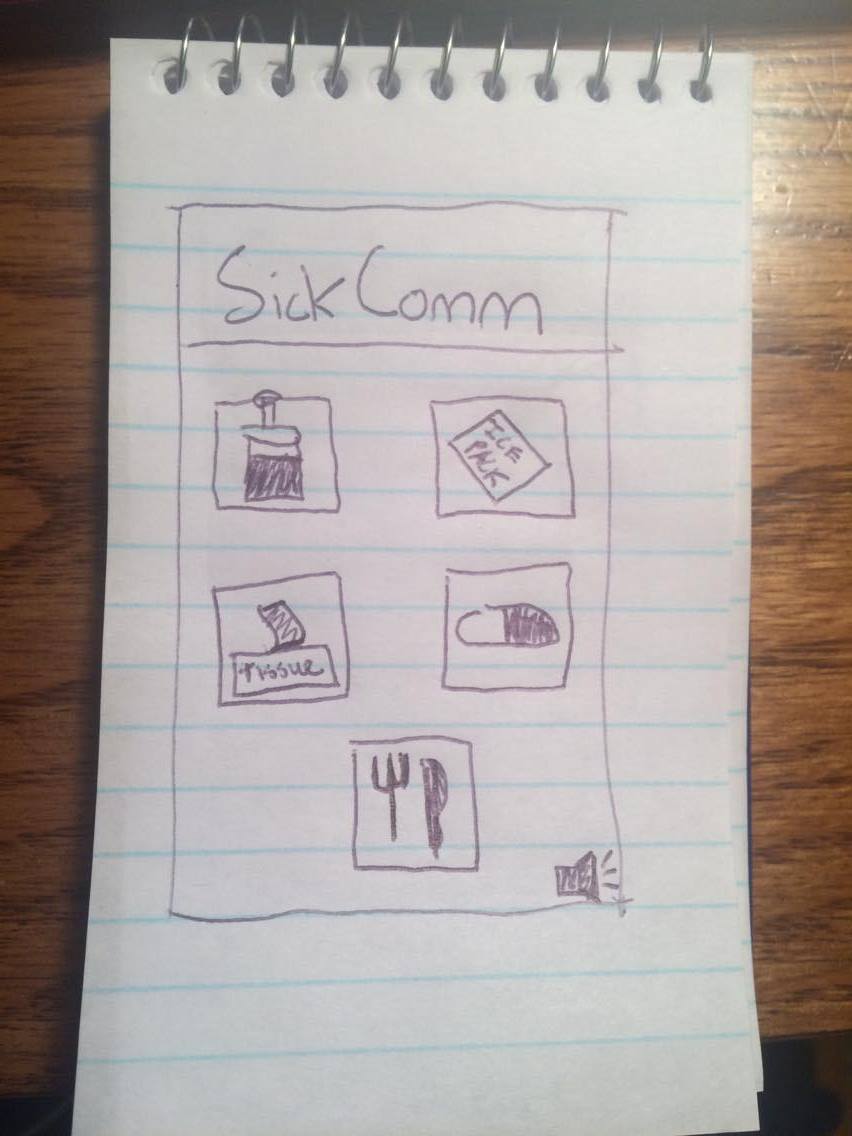 Sick Comm
ICE
PACK
Tissue